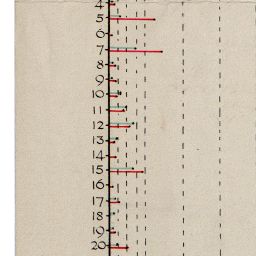 4
5
6
7
8
9
10
11
12
13
14
15
16
17
18
19
20